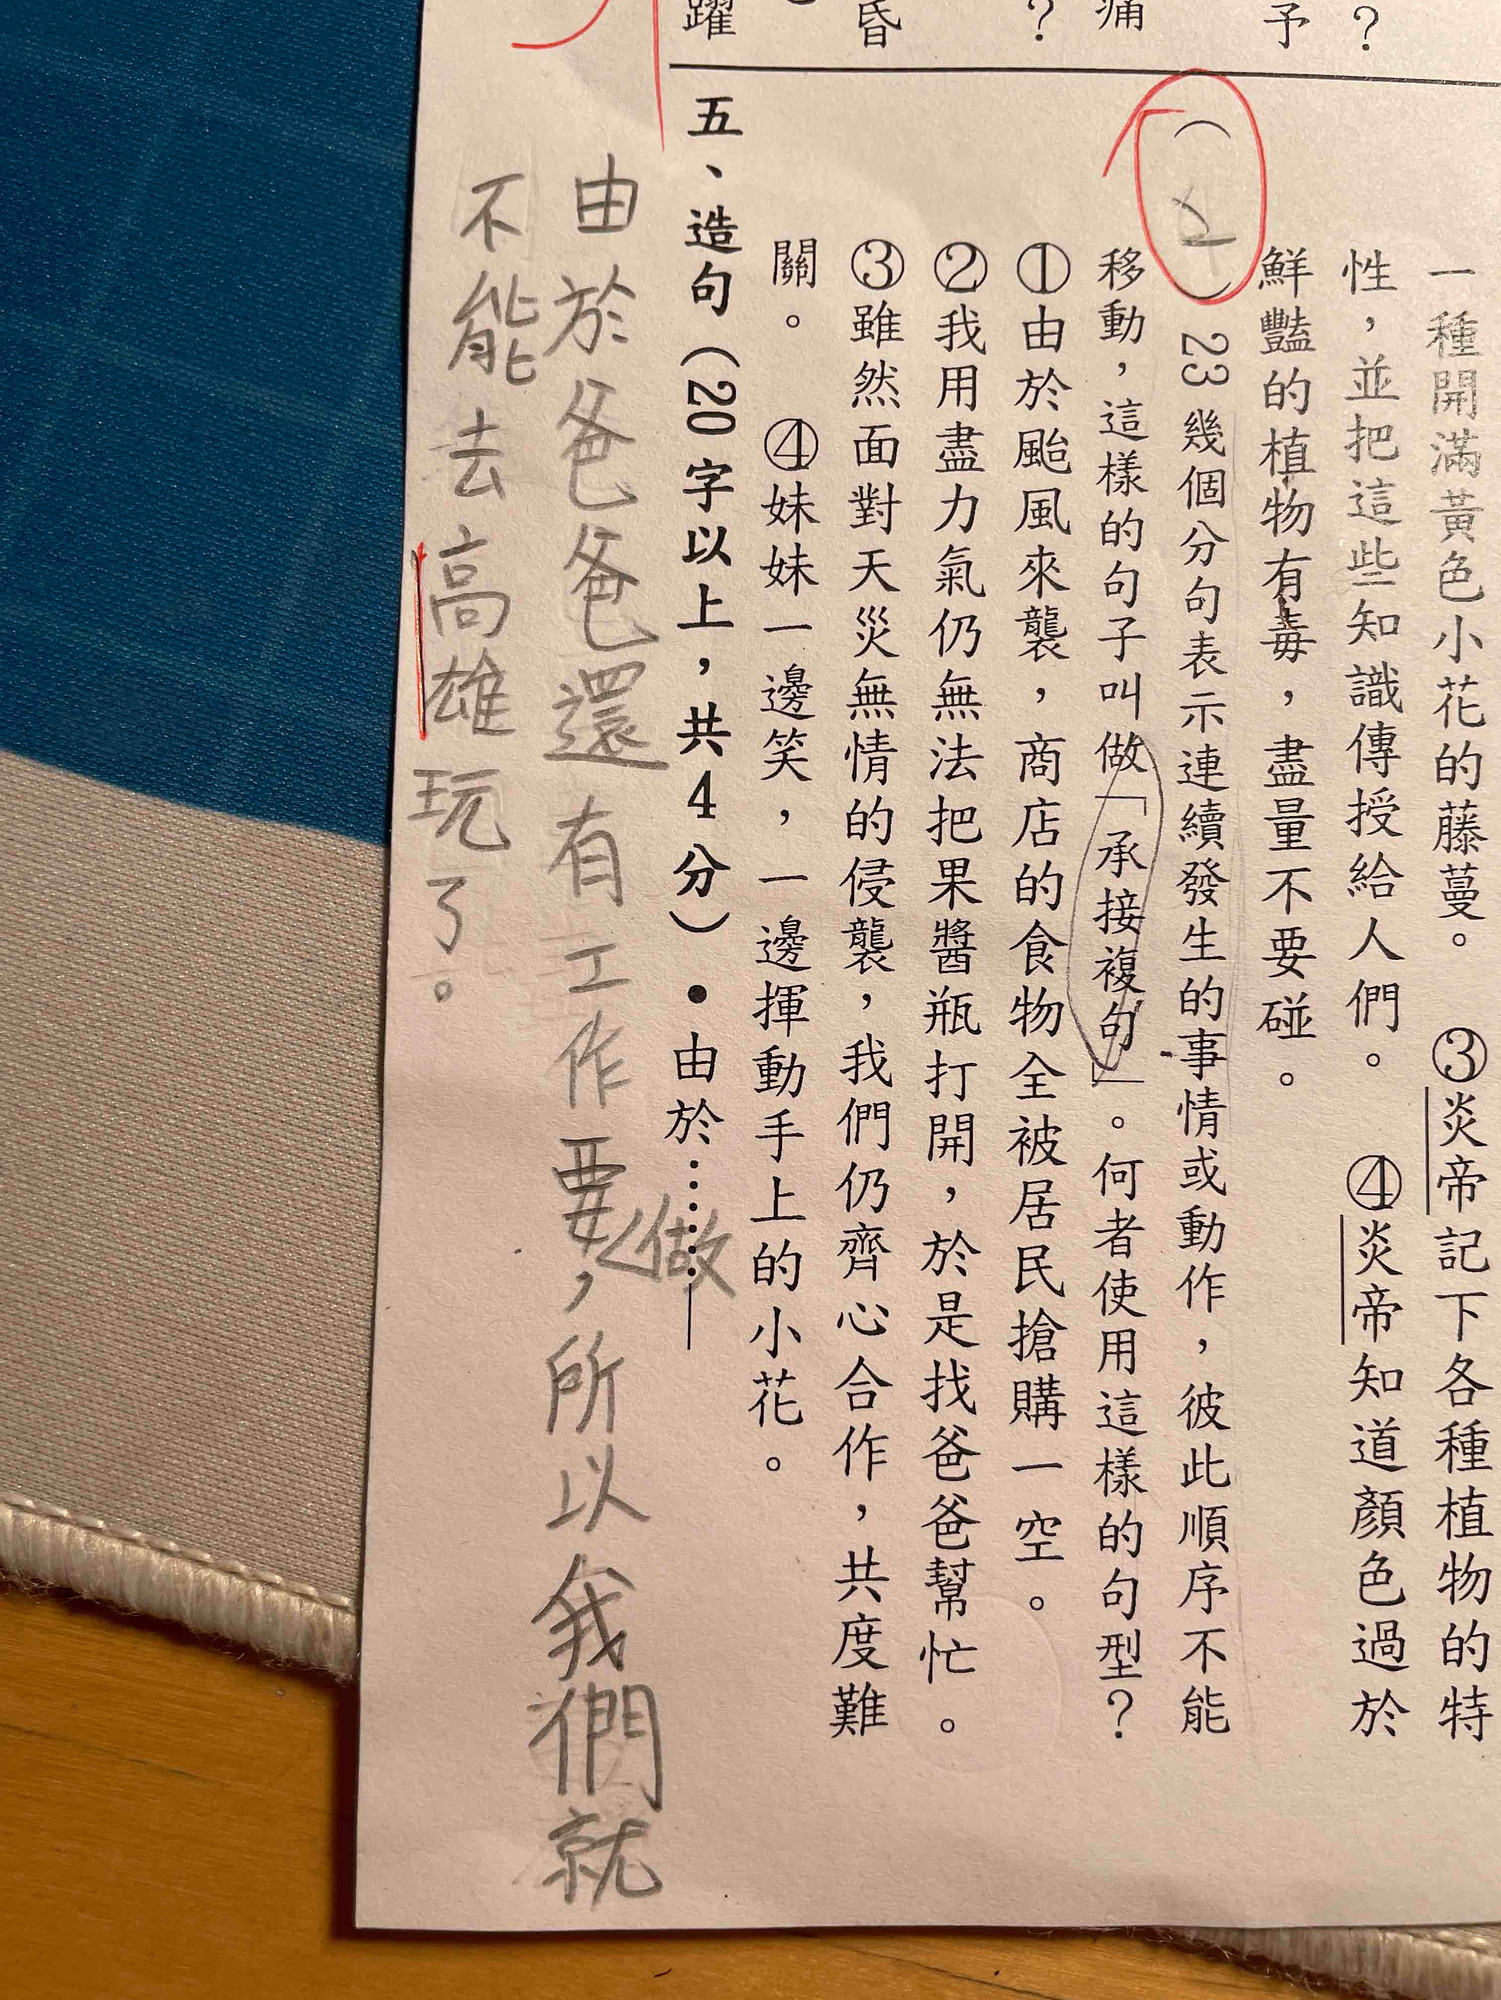 一種開滿黃色小花的藤蔓。　③炎帝記下各種植物的特
性，並把這些知識傳授給人們。　④炎帝知道顏色過於
鮮豔的植物有毒，盡量不要碰。
（4）23幾個分句表示連續發生的事情或動作，彼此順序不能
移動，這樣的句子叫做「承接複句」。何者使用這樣的句型？
①由於颱風來襲，商店的食物全被居民搶購一空。
②我用盡力氣仍無法把果醬瓶打開，於是找爸爸幫忙。
③雖然面對天災無情的侵襲，我們仍齊心合作，共度難
關。　④妹妹一邊笑，一邊揮動手上的小花。
五、造句（20字以上，共4分）●由於………___
由於爸爸還有工作要做，所以我們就
不能去高雄玩了。
？
予
痛
？
昏
躍